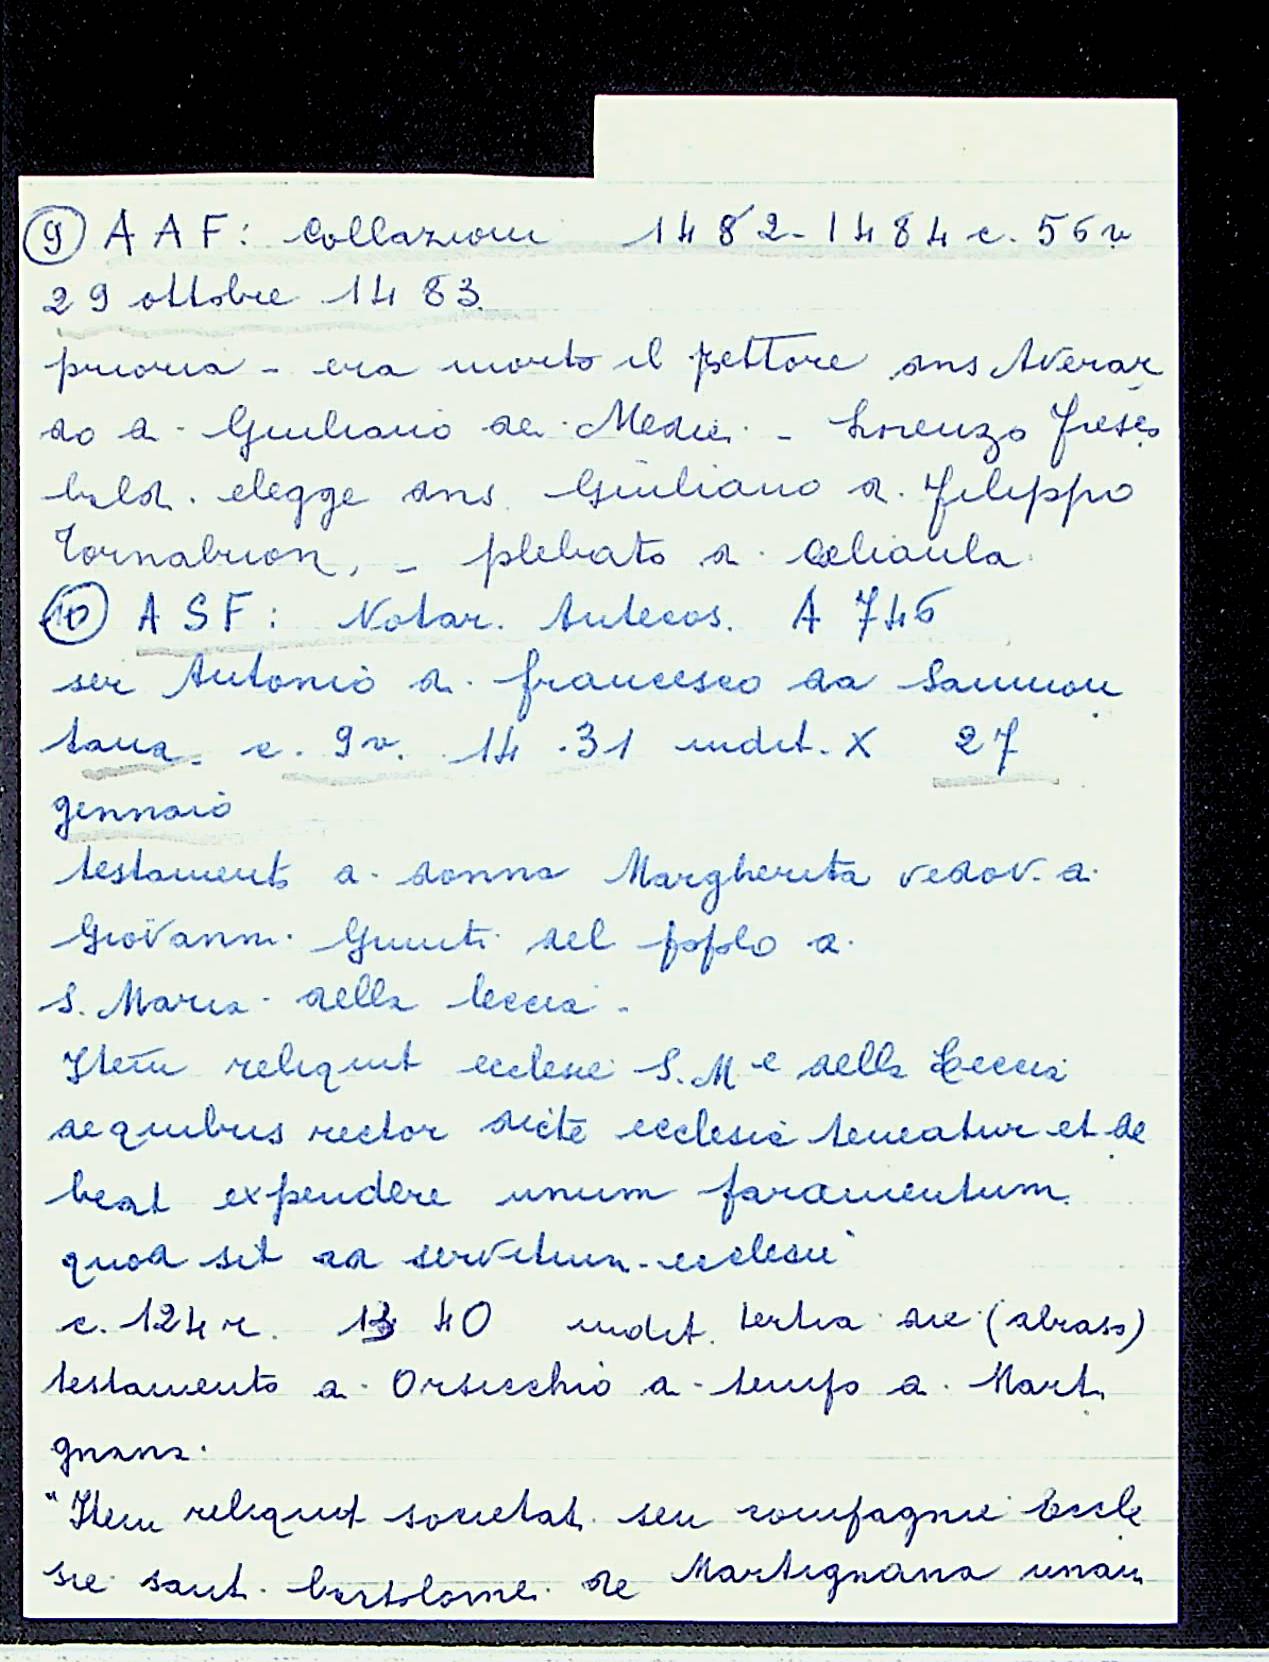 9 AAF: Collazioni 1482-1484 c. 56v
29 ottobre 1483.
prioria - era morto il rettore dns Averar
do di Giuliano dei Medici - Lorenzo Fresco
baldi elegge dns Giuliano di Filippo
Tornabuoni - plebato di Celiaula
10 ASF: Notar. Antecos. A 746
ser Antonio di Francesco da Sanmon
tana. c. 9v. 1431 indit. X 27
gennaio
testamento di donna Margherita vedova di
Giovanni Giunti del popolo di
S. Maria della Leccia.
Item reliquit ecclesie S. Me della Leccia
de quibus rector dicte ecclesie teneatur et de
beat expendere unum paramentum
quod sit ad servitium ecclesie
c. 124r. 1340 indit. tertia die (abraso)
testamento di Orsicchio di tempo di Marti
gnana.
"Item reliquit societati seu compagnie Eccle
sie santi bartolomei de Martignana unam